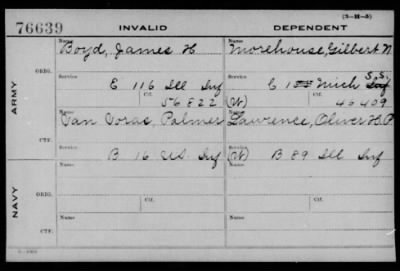 (3-H-5)
76639 INVALID DEPENDENT
Name Name
Boyd, James H Morehouse, Gilbert M
ARMY
ORIG. Service Service S.S.
E 116 Ill Inf C 1st Mich Inf
Ctf. Ctf.
56822 (W) 45409
Name
Van Voras, Palmer Lawrence, Oliver H. P.
ORIG. Service
B 16 U.S. Inf (W) B 89 Ill Inf
Ctf. Ctf.
Name Name
NAVY
ORIG. Service Service
Ctf. Ctf.
Name Name